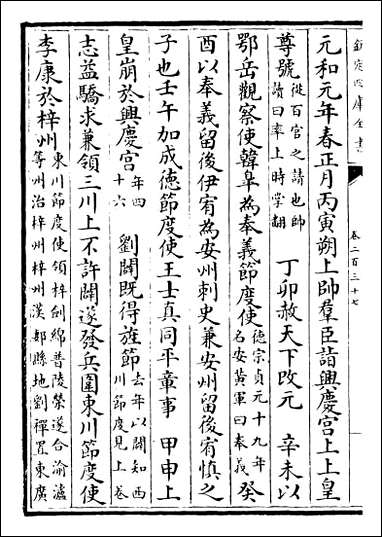 欽定四庫全書
卷二百三十七
元和元年春正月丙寅朔上帥羣臣詣興慶宮上上皇
尊號從百官之請也帥
讀曰率上時掌翻丁卯赦天下改元辛未以
鄂岳觀察使韓臯為奉義節度使德宗貞元十九年
名安黃軍曰奉義癸
酉以奉義留後伊宥為安州刺史兼安州留後宥慎之
子也壬午加成德節度使王士真同平章事甲申上
皇崩於興慶宮年四
十六劉闢既得旌節去年以闢知西
川節度見上卷
志益驕求兼領三川上不許闢遂發兵圍東川節度使
李康於梓州東川節度使領梓劍綿普陵榮遂合渝瀘
等州治梓州梓州漢郪縣地劉禪置東廣